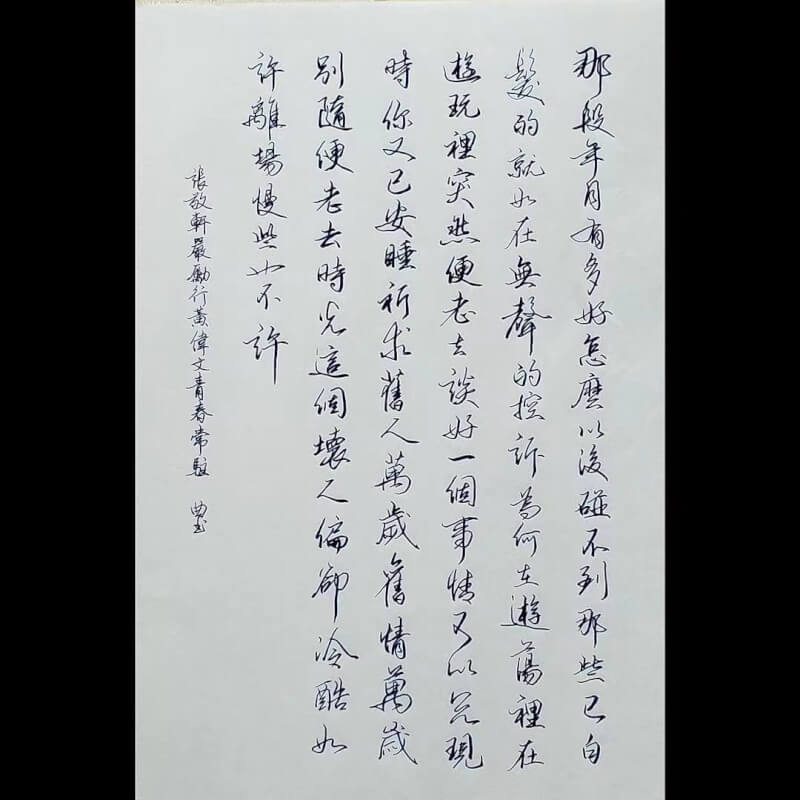 那段年月有多好怎麼以後碰不到那些已白
髮的就如在無聲的控訴為何在遊蕩裡在
遊玩裡突然便老去談好一個事情又以兌現
時你又已安睡祈求舊人萬歲舊情萬歲
別隨便老去時光這個壞人偏卻冷酷如
許離場慢些也不許
張敬軒嚴勵行黃偉文青春常駐